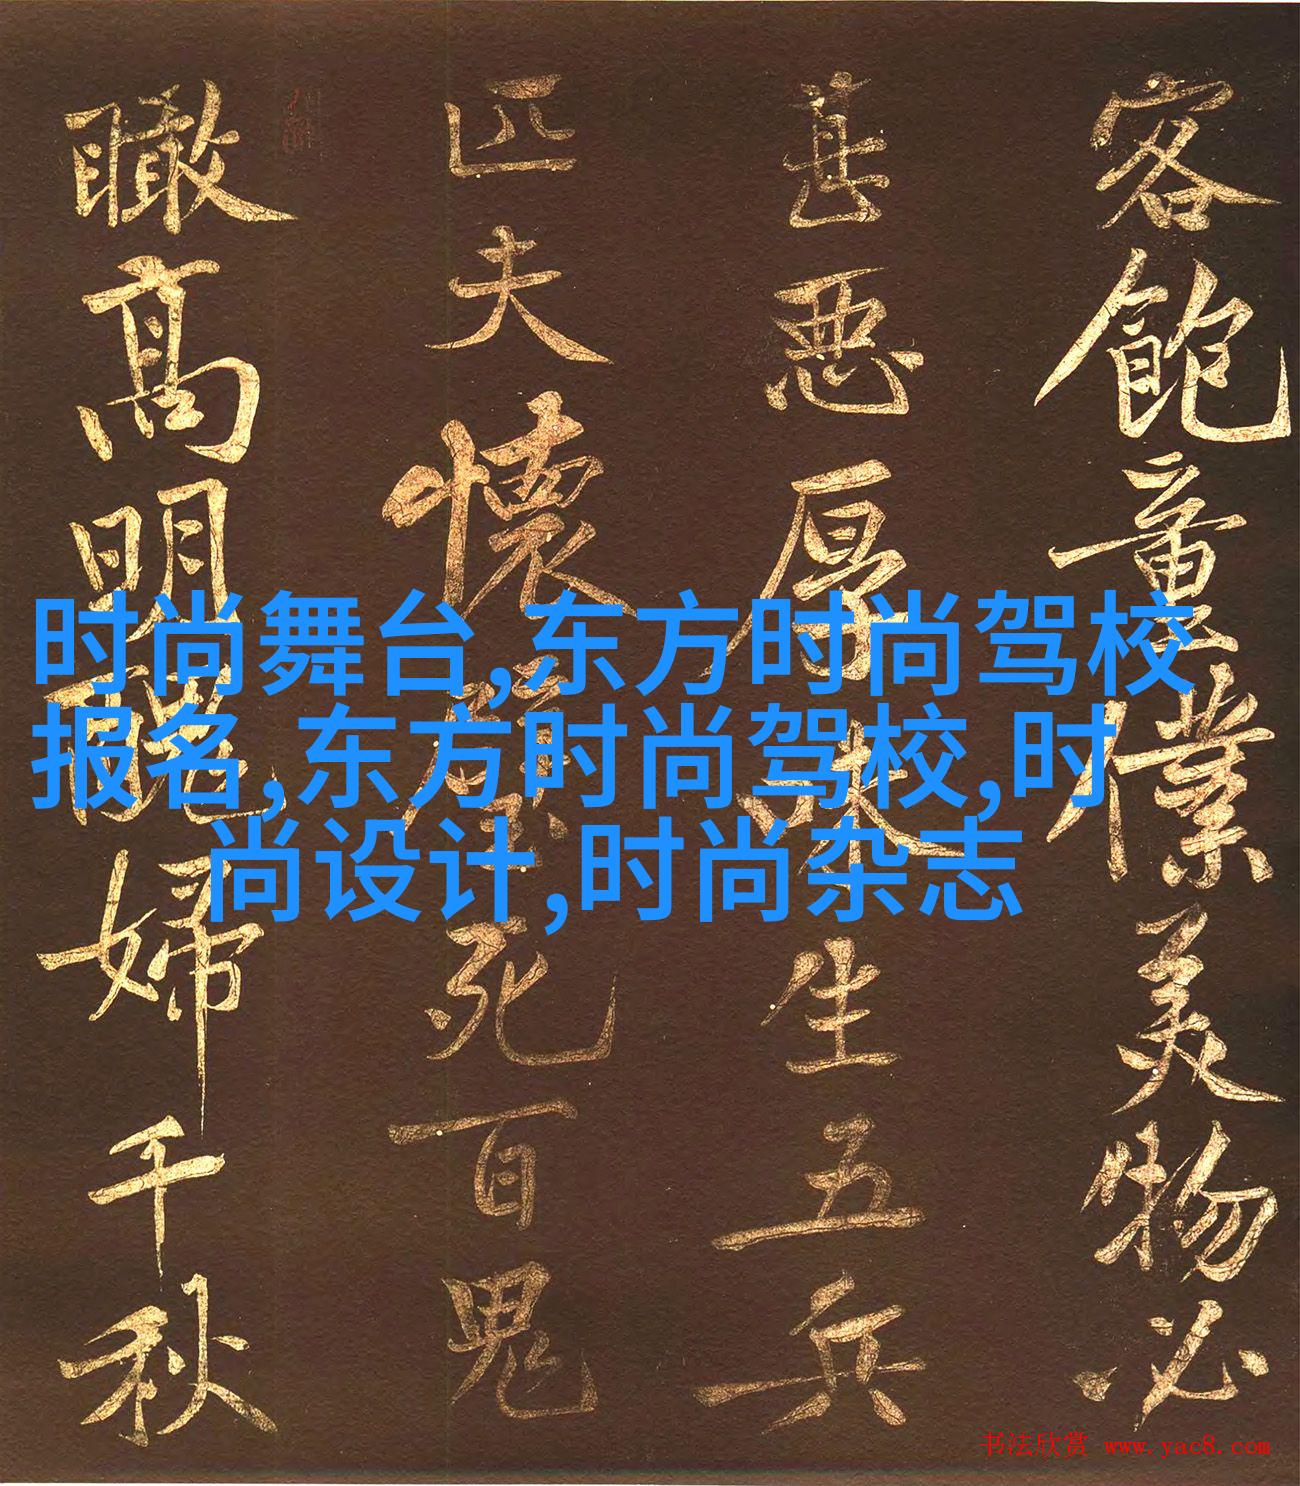 客飽童僕美物必
甚惡厚味生五兵
匹夫懷璧死百鬼
瞰高明醜婦千秋
时尚舞台,东方时尚驾校
报名,东方时尚驾校,时
尚设计,时尚杂志
书法欣赏 www.yac8.com